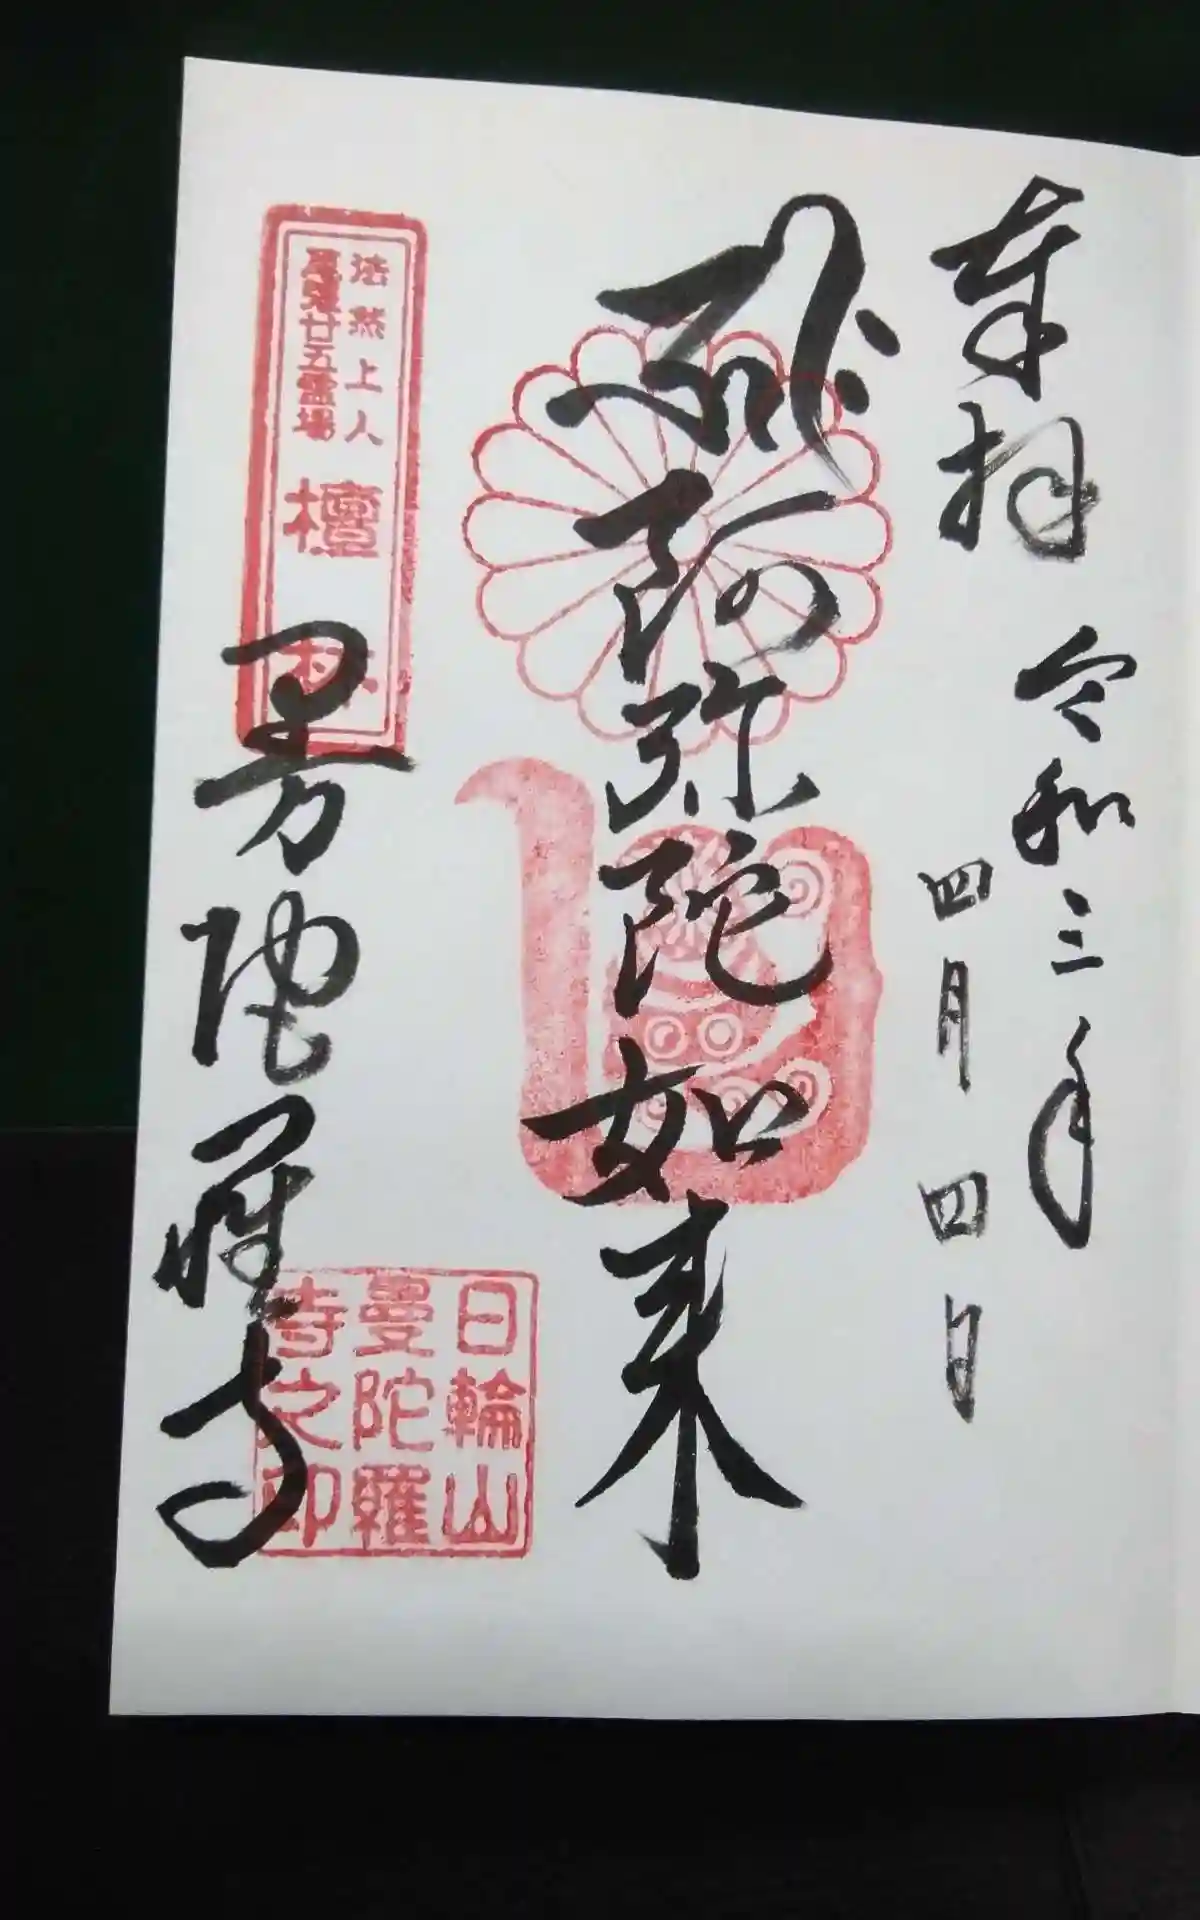 奉拝
令和三年
四月四日
阿弥陀如来
法然上人
尾張廿五霊場
檀林
曼陀羅寺
日輪山
曼陀羅
寺之印